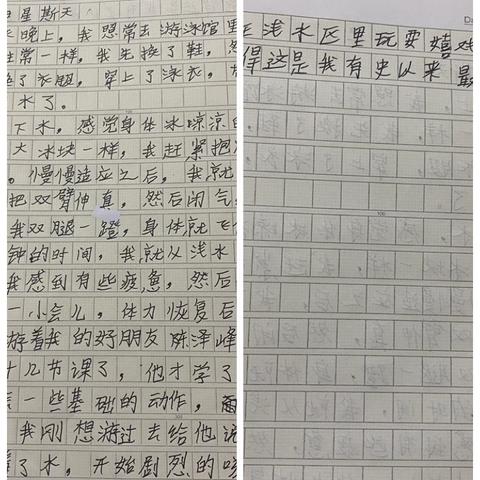 日星斯天
天晚上，我照常去游泳馆里
往常一样，我先换了鞋，然
了衣服，穿上了泳衣，
水了。
下水，感觉身体冰凉凉的
大冰块一样，我赶紧把
。慢慢适应之后，我就
把双臂伸真，然后闭气
我双腿一蹬，身体就飞
钟的时间，我就从浅水
我感到有些疲惫，然后
一小会儿，体力恢复后
游着我的好朋友陈泽峰
十几节课了，他才学了
一些基础的动作，
我刚想游过去给他说
了水，开始剧烈的咳
在浅水区里玩耍嬉戏
得这是我有史以来最